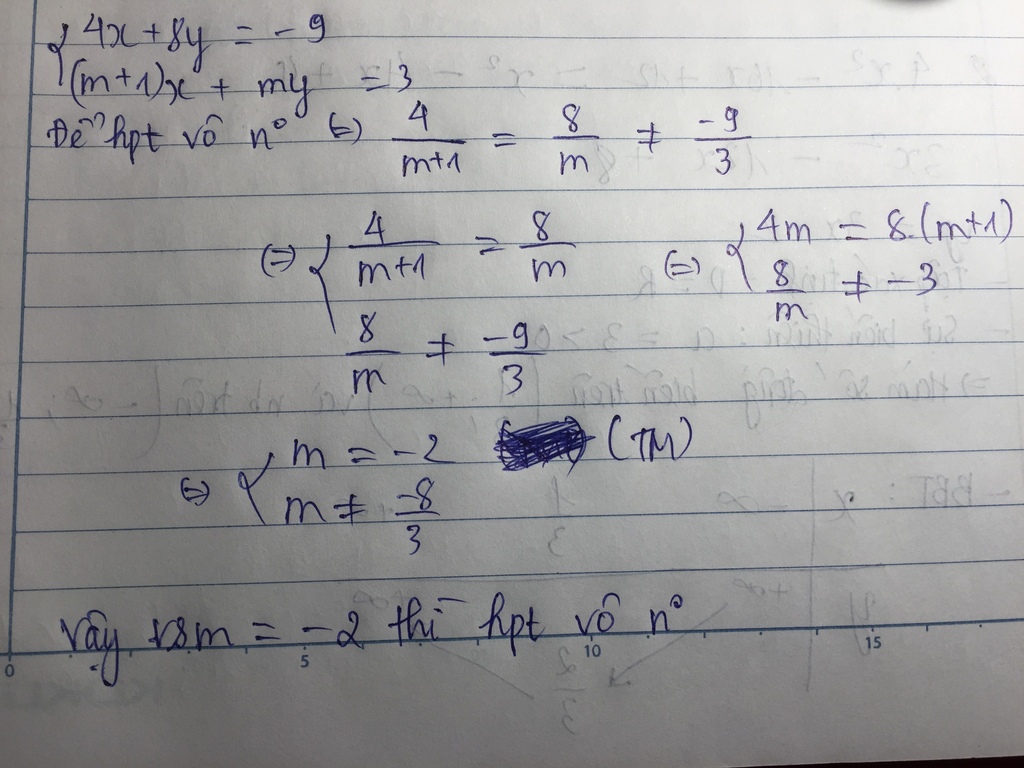 { 4x + 8y = -9
(m+1)x + my = 3
Để hpt vô n° ⇔ 4/(m+1) = 8/m ≠ -9/3
⇔ { 4/(m+1) = 8/m ⇔ { 4m = 8.(m+1)
8/m ≠ -9/3 8/m ≠ -3
⇔ { m = -2 (TM)
m ≠ -8/3
vậy với m = -2 thì hpt vô n°
0 5 10 15